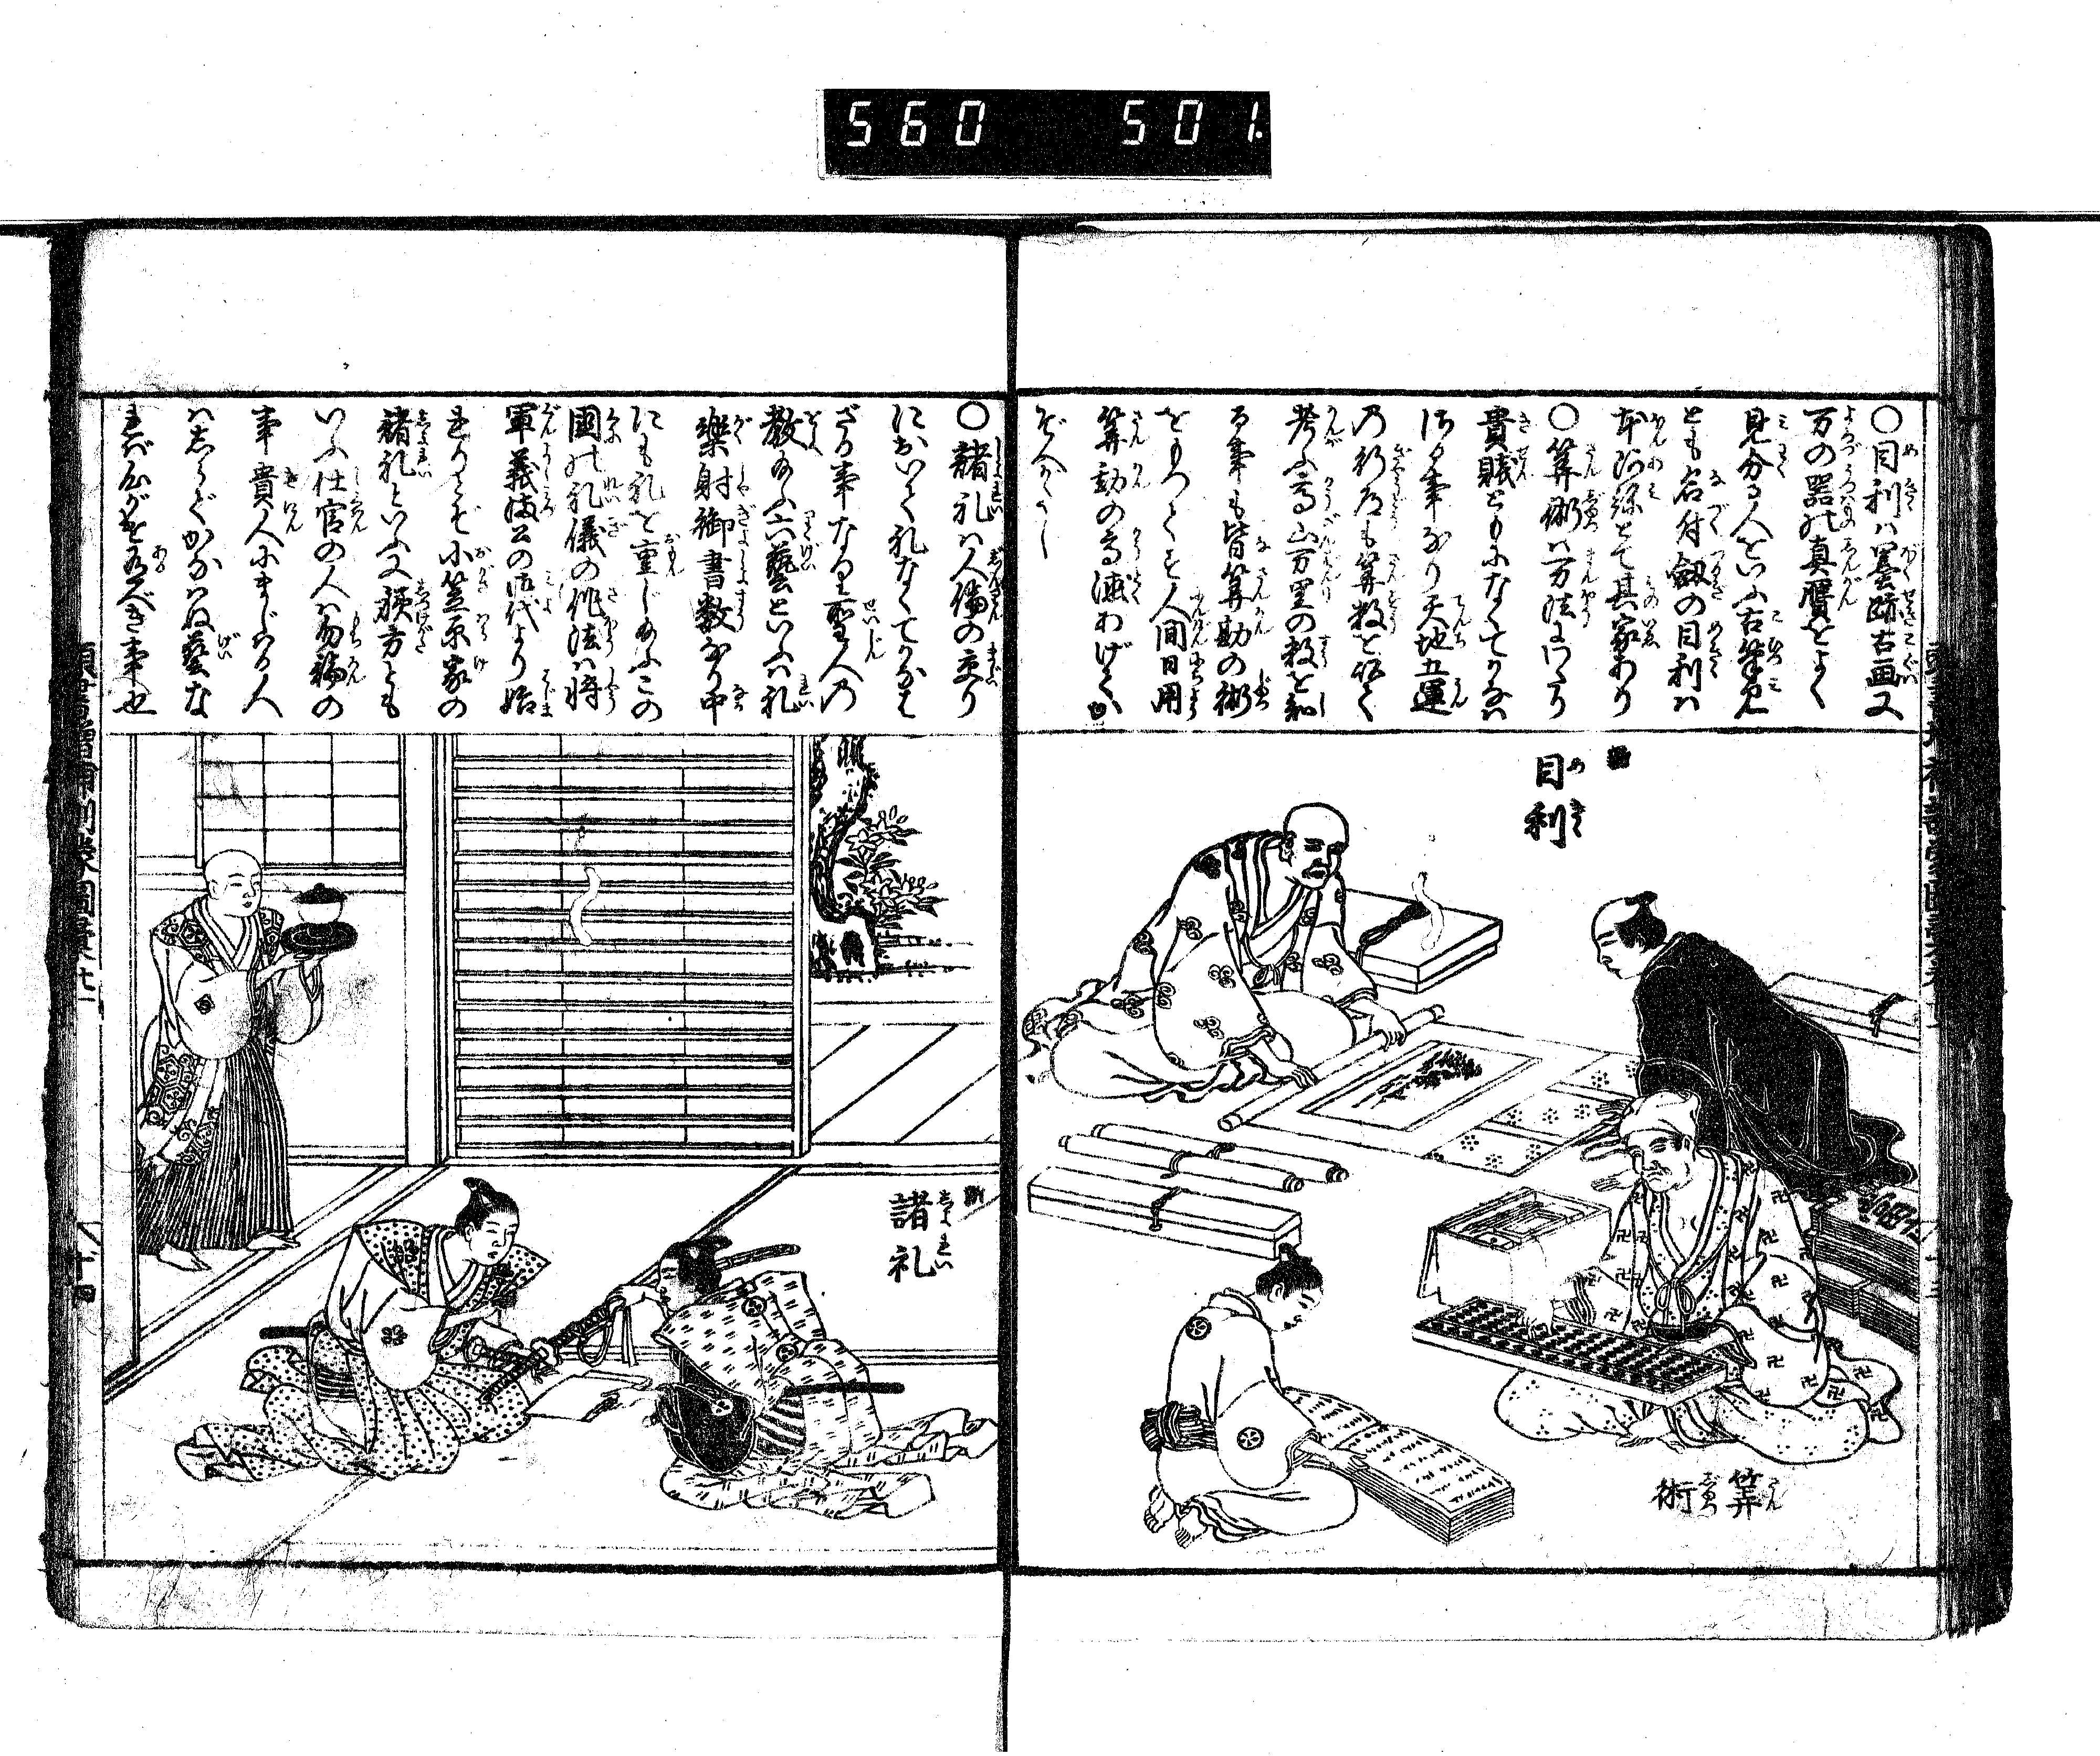 560 501
〇目利ハ墨跡古画又
万の器の真贋をよく
見分る人といふ古筆見
とも名付劔の目利ハ
本阿弥とて其家あり
〇算術ハ万法にわたり
貴賎ともになくてかなハ
ぬ事なり天地五運
の行度も算数を以て
考ふ高山万里の数を知
る事も皆算勘の術
をもつてす人間日用
算勘の
ぞんかし
目利
算術
〇諸礼ハ人倫の交り
において礼なくてかなハ
ざる事なり聖人の
教給ふ六藝といふハ礼
樂射御書数なり中
にも礼を重じ給ふこの
國の礼儀の作法ハ将
軍義満公の御代より始
れりとぞ小笠原家の
諸礼といふ又躾方とも
いふ仕官の人ハ勿論の
事貴人にまじわる人
ハしらでかなハぬ藝な
れバ心がけ有べき事也
諸礼
十四